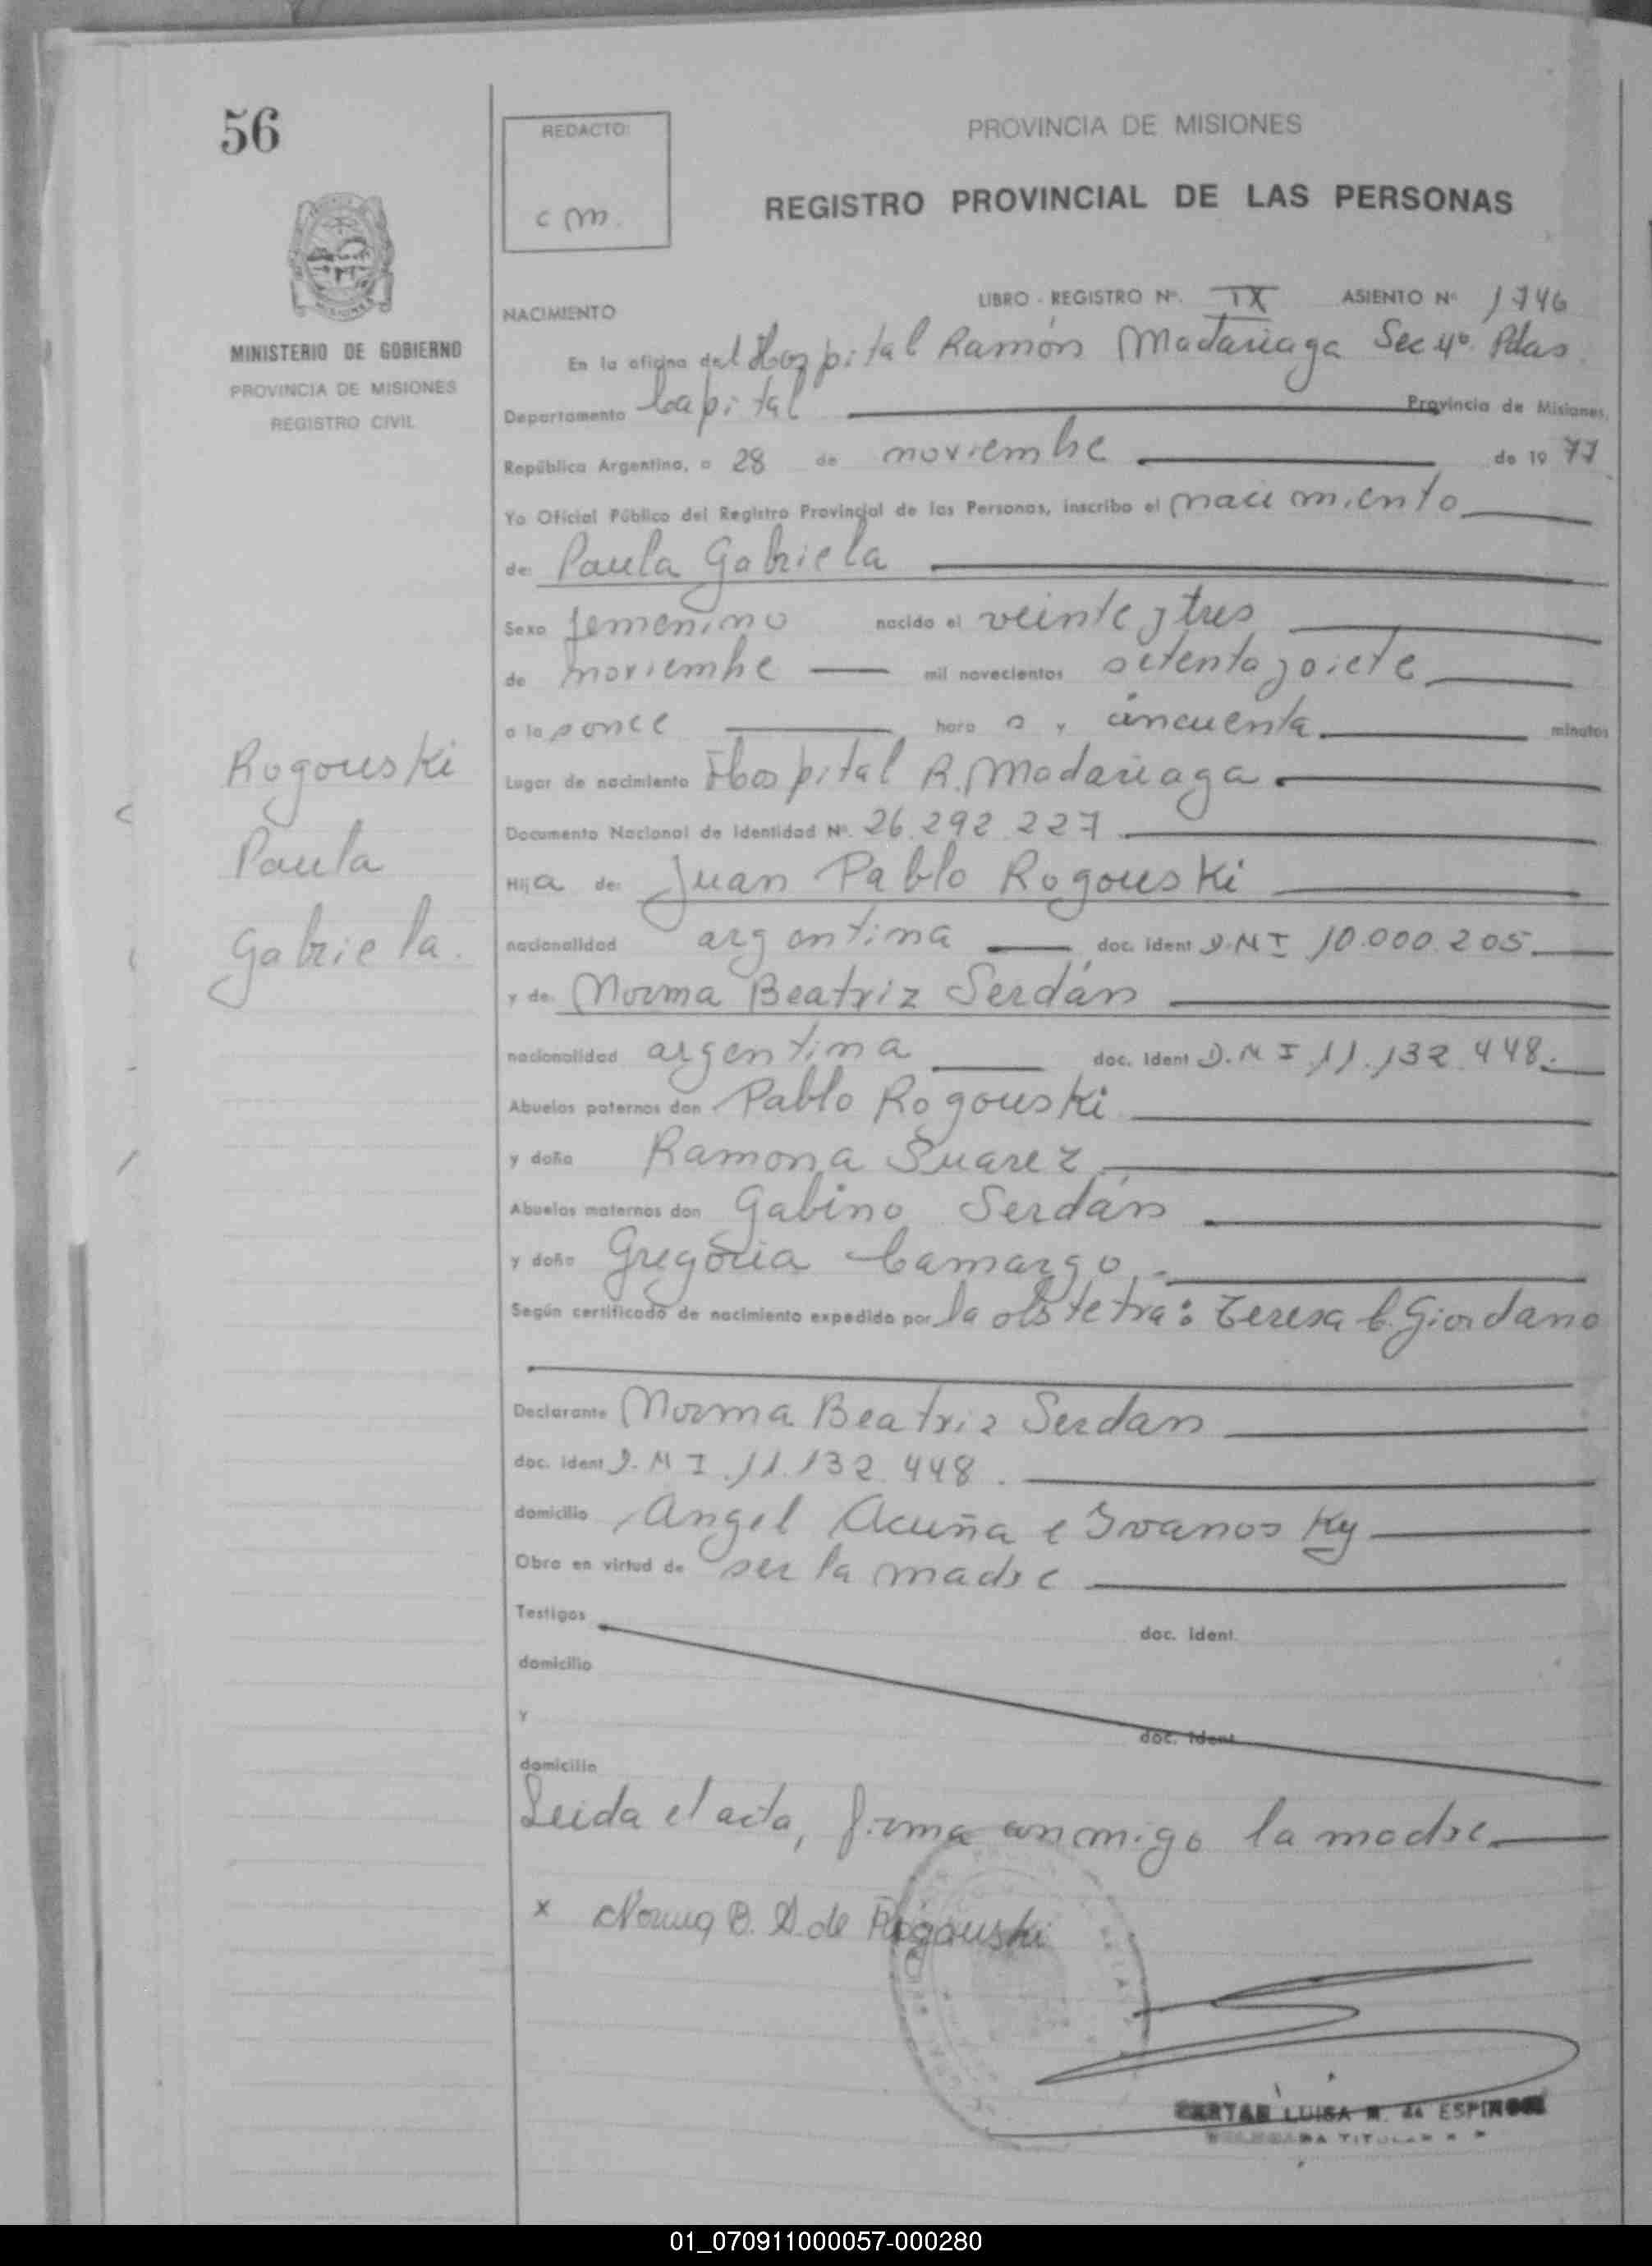 56
REDACTO:
c m.
PROVINCIA DE MISIONES
REGISTRO PROVINCIAL DE LAS PERSONAS
MINISTERIO DE GOBIERNO
PROVINCIA DE MISIONES
REGISTRO CIVIL
LIBRO - REGISTRO Nº. IX ASIENTO Nº 1746
NACIMIENTO
En la oficina del Hospital Ramón Madariaga Sec 4º. Pdas
Departamento Capital Provincia de Misiones,
República Argentina, a 28 de noviembre de 19 77
Yo Oficial Público del Registro Provincial de las Personas, inscribo el nacimiento
de: Paula Gabriela
Sexo femenino nacido el veinte y tres
de noviembre mil novecientos setenta y siete
a la s once hora s y cincuenta minutos
Lugar de nacimiento Hospital R. Madariaga
Documento Nacional de Identidad Nº. 26.292.227
Rogouski
Paula
Gabriela.
Hija de: Juan Pablo Rogouski
nacionalidad argentina doc. ident D.N.I 10.000.205
y de: Norma Beatriz Serdán
nacionalidad argentina doc. ident D.N.I 11.132.448.
Abuelos paternos don Pablo Rogouski
y doña Ramona Suarez
Abuelos maternos don Gabino Serdán
y doña Gregoria Camargo
Según certificado de nacimiento expedido por la obstetra: Teresa C. Giordano
Declarante Norma Beatriz Serdan
doc. ident D.N.I. 11.132.448.
domicilio Angel Acuña e Ivanosky
Obra en virtud de ser la madre
Testigos doc. ident.
domicilio
Y doc. ident
domicilio
Leida el acta, firma conmigo la madre
x Norma B. S. de Rogouski
LUISA de ESPINOSA
TITULAR
01_070911000057-000280